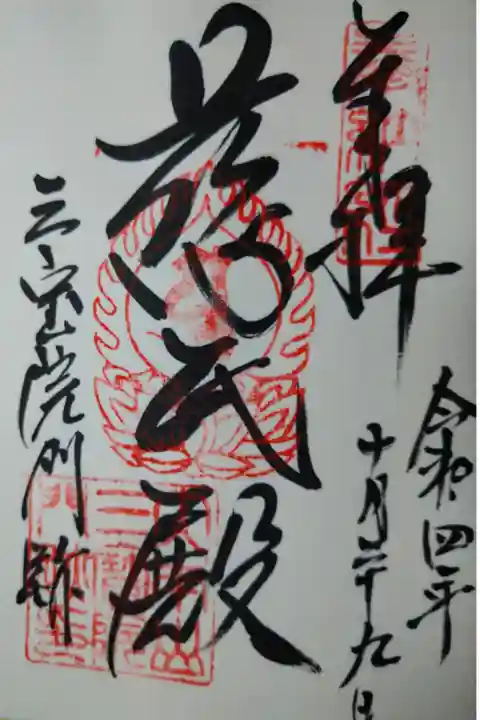 奉拝
令和四年
十月二十九日
慈氏殿
三宝院門跡